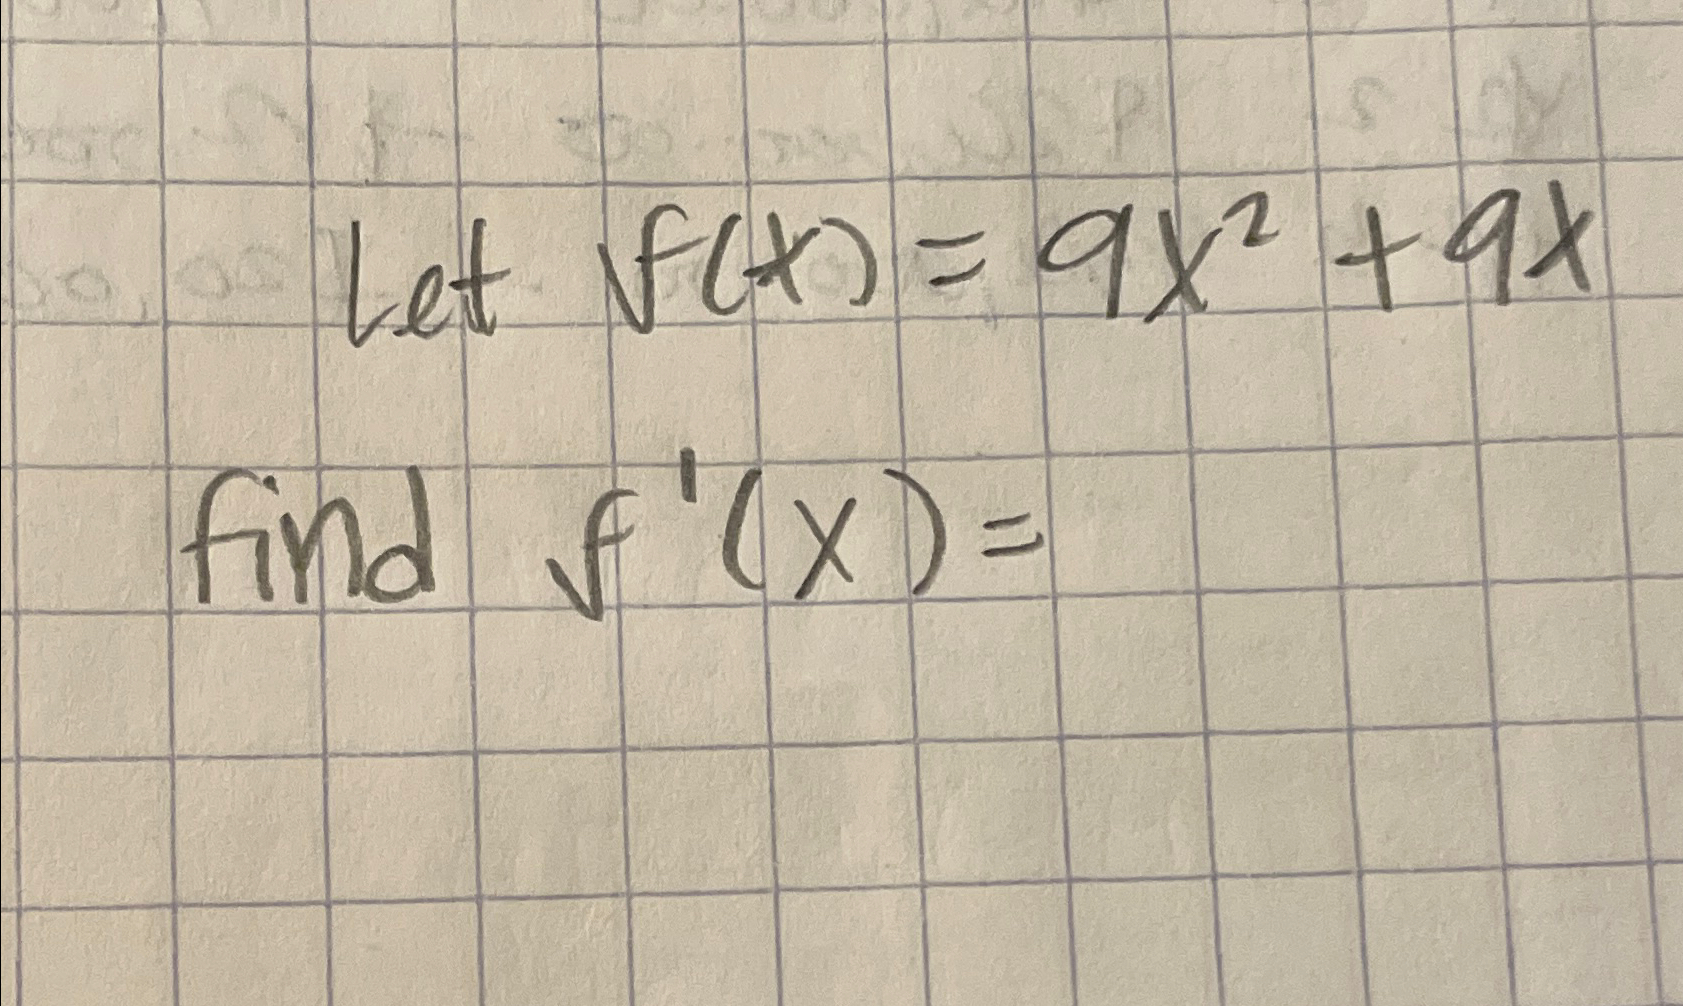 Let f(x) = 9x² + 9x
find f'(x) =